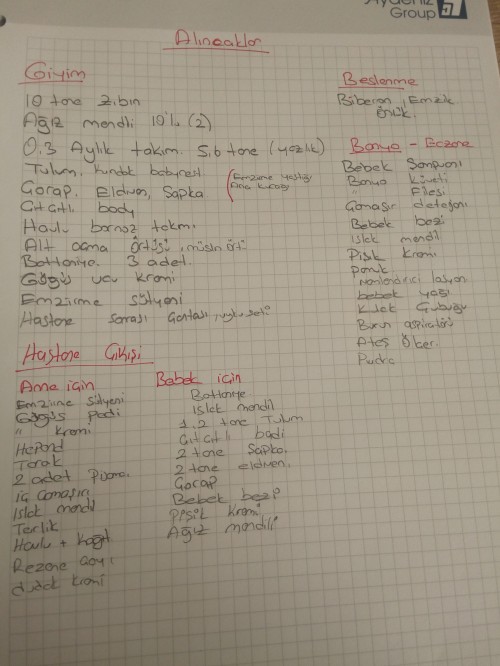 Group
Alınacaklar
Giyim
10 tane Zıbın
Ağız mendli 10'lu (2)
0.3 Aylık takım. 5,6 tane (yazlık)
Tulum, kundak babynest
Emzirme yastığı
Ana kucağı
Çorap, Eldiven, Şapka
Çıtçıtlı body
Havlu bornoz takmı
Alt açma örtüsü, müslin ört
Battaniye. 3 adet.
Göğüs ucu kremi
Emzirme sütyeni
Hastane sonrası Çantası, uyku seti
Beslenme
Biberon, Emzik
Önlük.
Banyo - Eczane
Bebek Şampuanı
Banyo küveti
" Filesi
Çamaşır deterjanı
Bebek bezi
Islak mendil
Pişik Kremi
pamuk
Nemlendirici losyon
bebek yağı
Kulak Çubuğu
Burun aspiratörü
Ateş Ölçer.
Pudra
Hastane Çıkışı
Anne için
Emzirme sütyeni
Göğüs Pedi
" kremi
Hepond
Tarak
2 adet Pijama.
iç çamaşırı
Islak mendil
Terlik
Havlu + kağıt
Rezene çayı
dudak kremi
Bebek için
Battaniye
Islak mendil
1,2 tane Tulum
Çıtçıtlı badi
2 tane Şapka.
2 tane eldiven.
Çorap
Bebek bezi
Pişik kremi
Ağız mendili